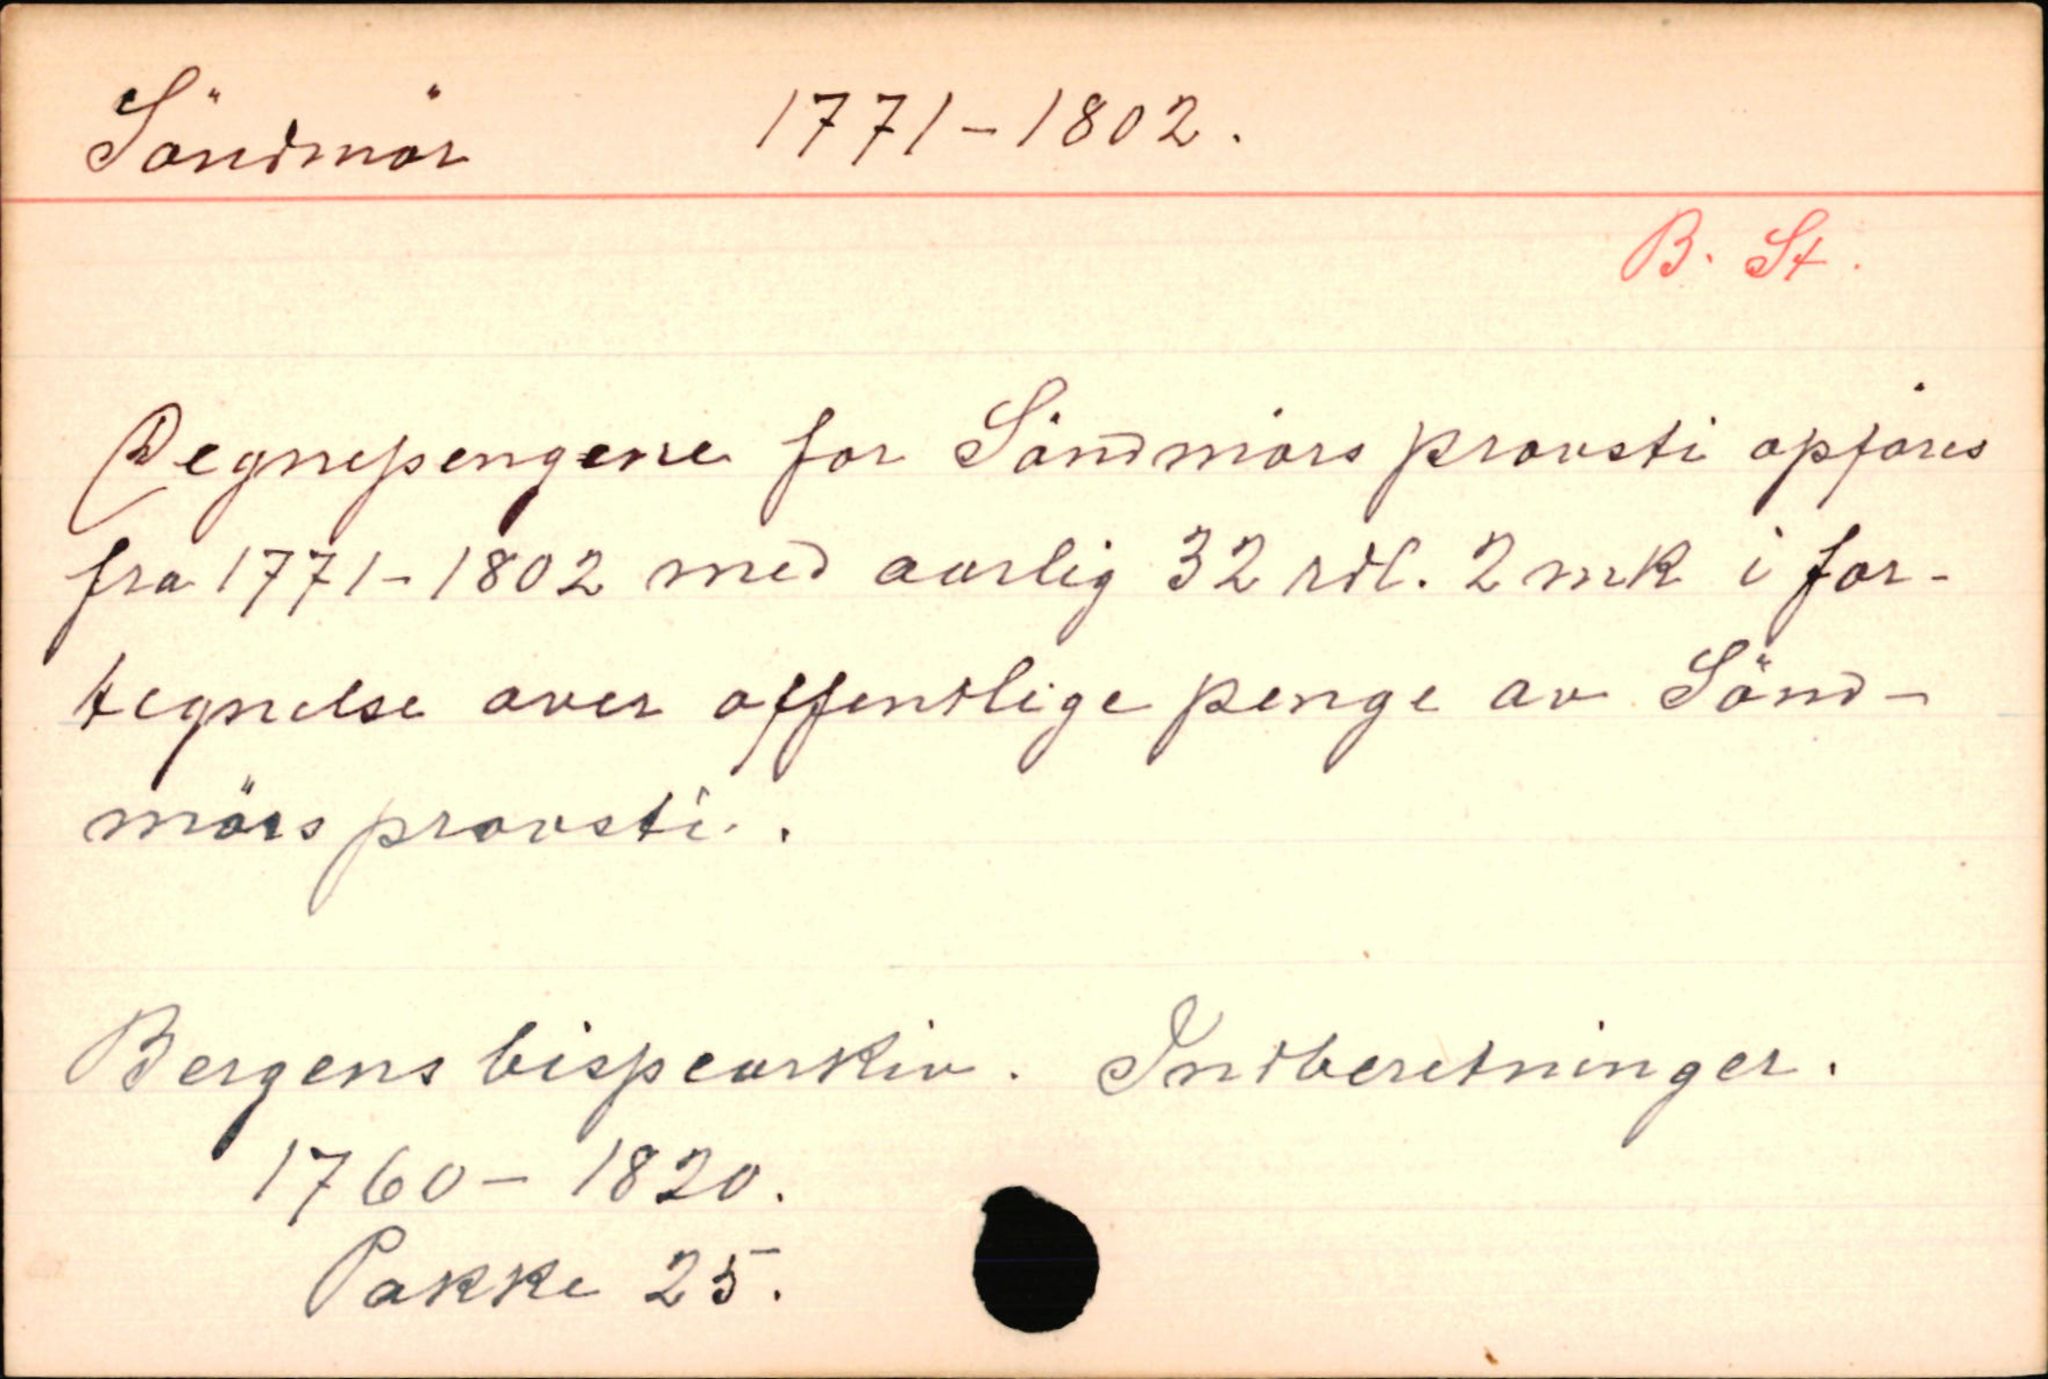 Söndmör 1771-1802.
B. St.
Degnepengene for Söndmörs provsti opföres
fra 1771-1802 med aarlig 32 rdl. 2 mk i for-
tegnelse over offendlige penge av Sönd-
mörs provsti.
Bergens bispearkiv. Indberetninger.
1760-1820.
Pakke 25.